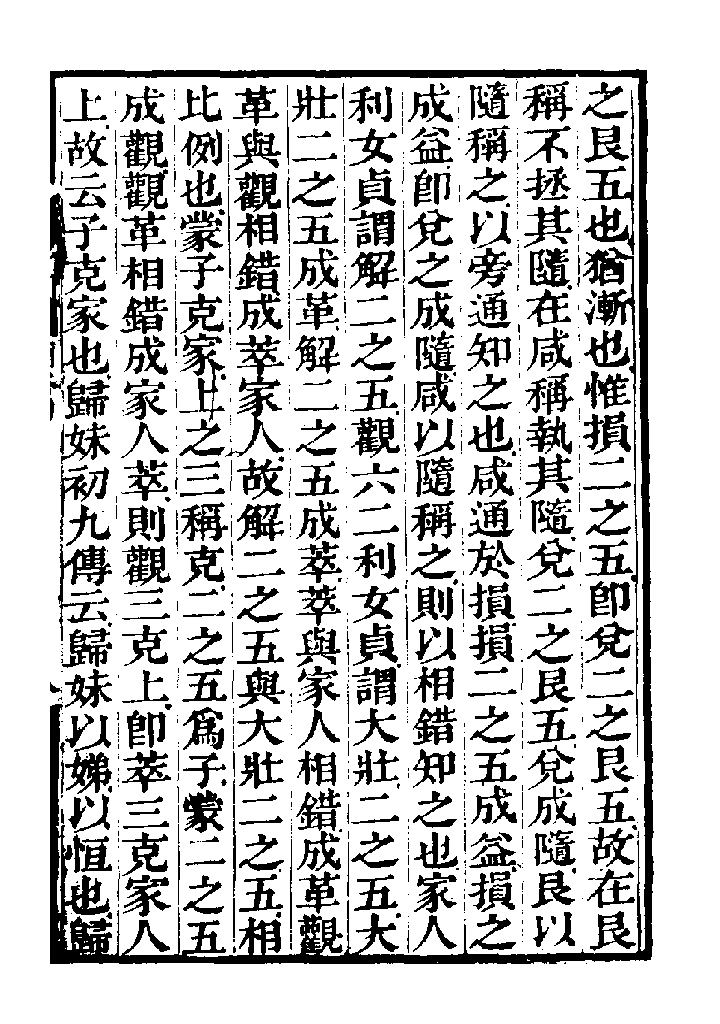 之艮五也猶漸也惟損二之五卽兌二之艮五故在艮
稱不拯其隨在咸稱執其隨兌二之艮五兌成隨艮以
隨稱之以旁通知之也咸通於損損二之五成益損之
成益卽兌之成隨咸以隨稱之則以相錯知之也家人
利女貞謂解二之五觀六二利女貞謂大壯二之五大
壯二之五成革解二之五成萃萃與家人相錯成革觀
革與觀相錯成萃家人故解二之五與大壯二之五相
比例也蒙子克家上之三稱克二之五爲子蒙二之五
成觀觀革相錯成家人萃則觀三克上卽萃三克家人
上故云子克家也歸妹初九傳云歸妹以娣以恒也歸